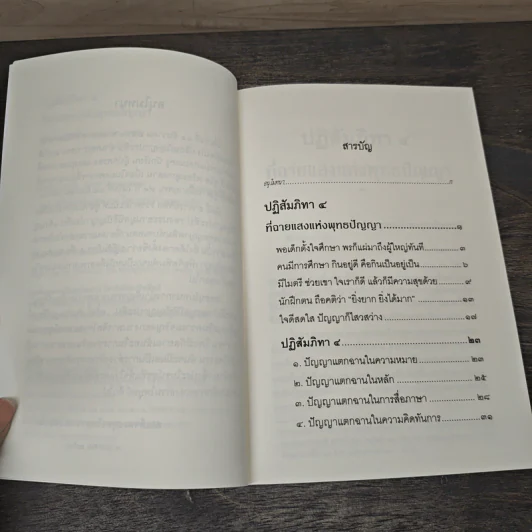 สารบัญ
อนุโมทนา
ปฏิสัมภิทา ๔
ที่ฉายแสงแห่งพุทธปัญญา ๑
พอเด็กตั้งใจศึกษา พรก็แผ่มาถึงผู้ใหญ่ทันที ๓
คนมีการศึกษา กินอยู่ดี คือกินเป็นอยู่เป็น ๖
มีไมตรี ช่วยเขา ใจเราก็ดี แล้วก็มีความสุขด้วย ๙
นักฝึกตน ถือคติว่า "ยิ่งยาก ยิ่งได้มาก" ๑๓
ใจดีสดใส ปัญญาก็ไสวสว่าง ๑๗
ปฏิสัมภิทา ๔ ๒๓
๑. ปัญญาแตกฉานในความหมาย ๒๓
๒. ปัญญาแตกฉานในหลัก ๒๕
๓. ปัญญาแตกฉานในการสื่อภาษา ๒๘
๔. ปัญญาแตกฉานในความคิดทันการ ๓๑